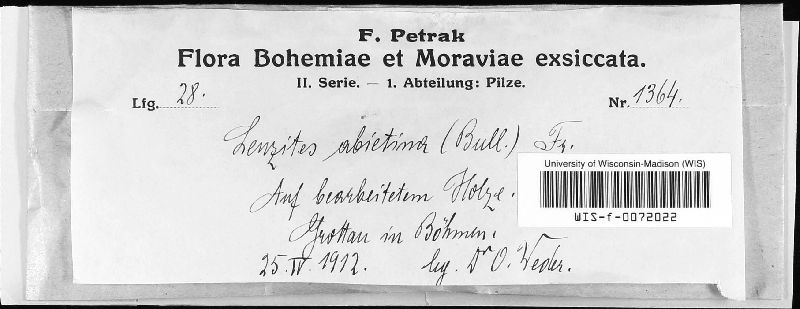 F. Petrak
Flora Bohemiae et Moraviae exsiccata.
II. Serie. — 1. Abteilung: Pilze.
Lfg. 28. Nr. 1364.
Lenzites abietina (Bull.) Fr.
Auf bearbeitetem Holze.
Grottau in Böhmen.
25.IV.1912. leg. Dr O. Weder.
University of Wisconsin-Madison (WIS)
WIS-f-0072022